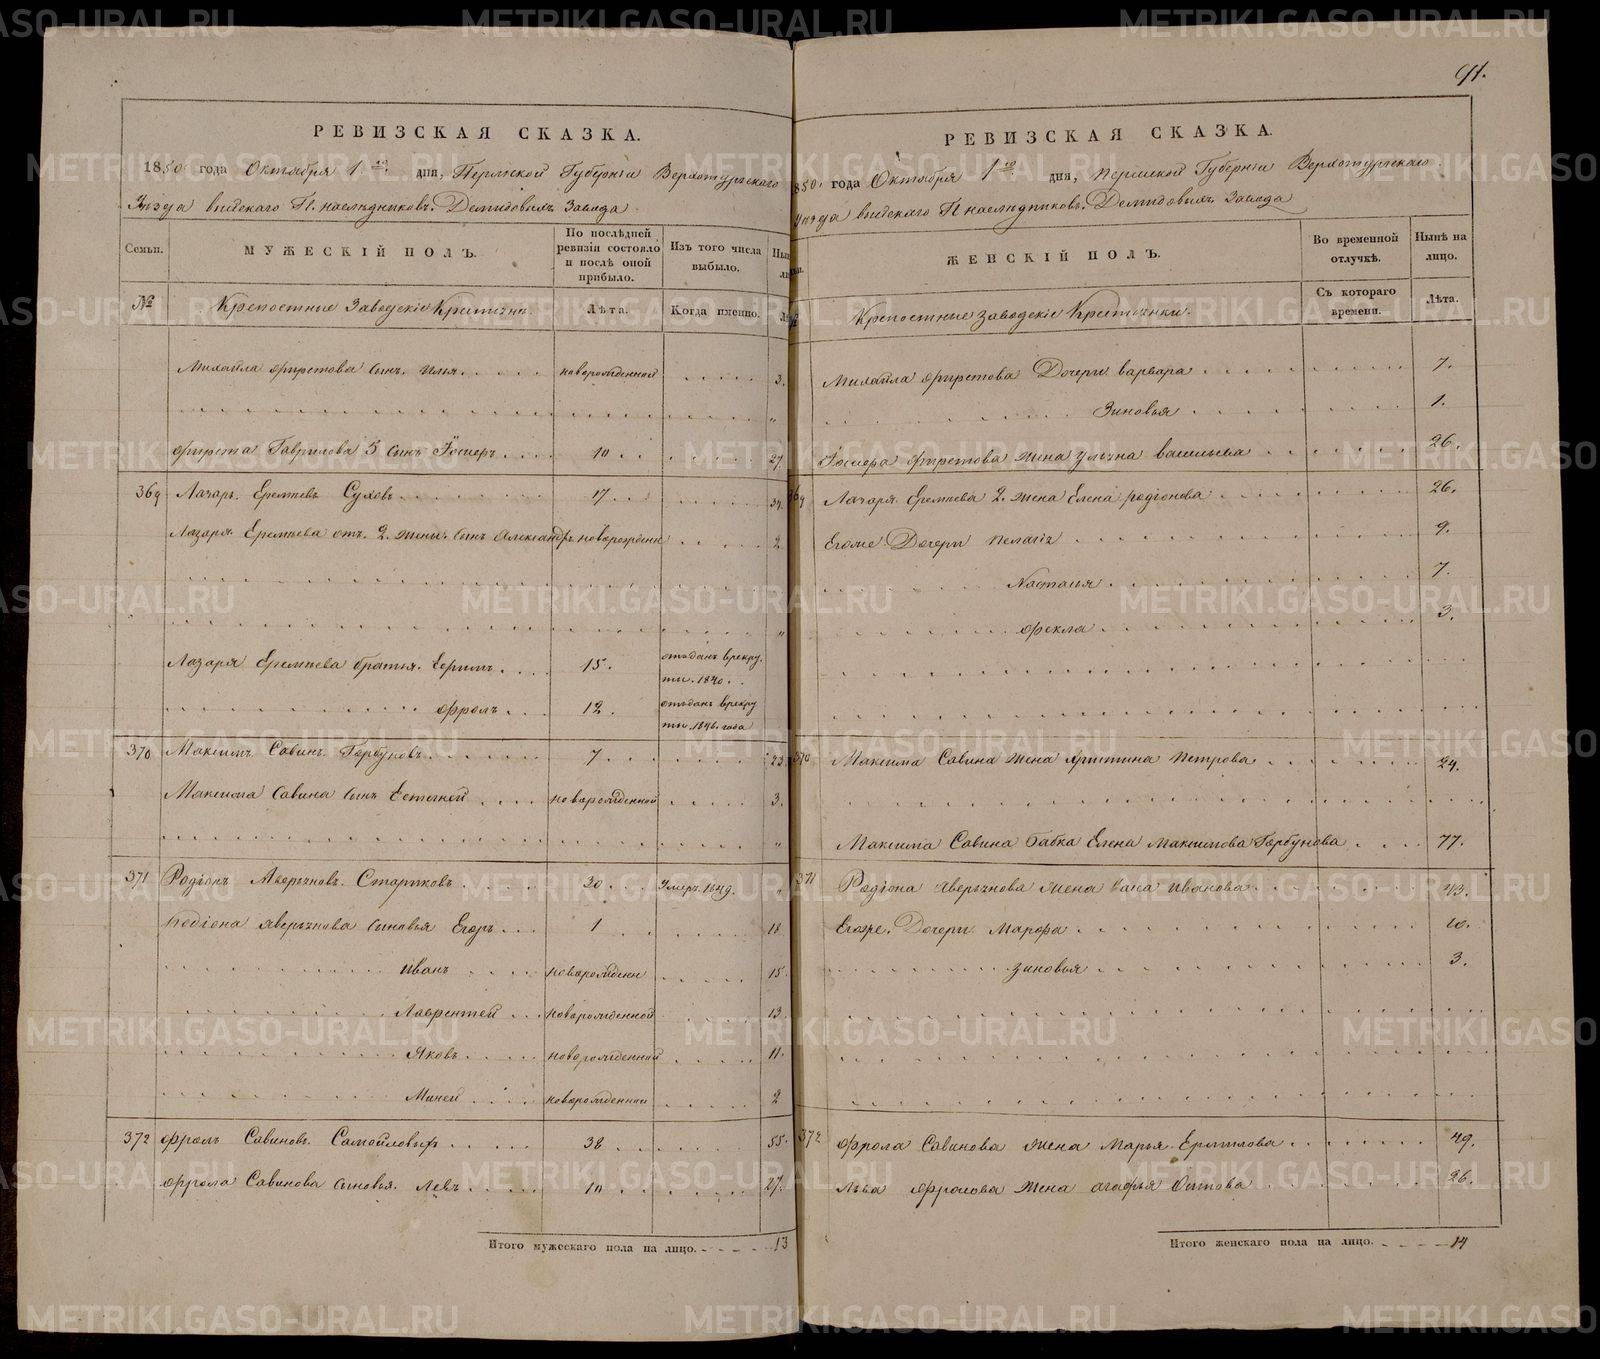 91.
РЕВИЗСКАЯ СКАЗКА.
1850 года Октября 1го дня, Пермской Губерніи Верхотурскаго
Уѣзда выйскаго Гг. наслѣдниковъ Демидовыхъ Завода
Семьи. МУЖЕСКІЙ ПОЛЪ. По послѣдней ревизіи состояло и послѣ оной прибыло. Изъ того числа выбыло.
№ Крепостные Заводскіе Крестьяне. Лѣта. Когда именно.
Михайла Фирсова сынъ Илья новорожденной 3.
Гаврилова 5 сынъ 10 27.
369 Лазарь Еремѣевъ Суховъ 17 34.
Лазаря Еремѣева отъ 2 жены сынъ Александръ новорожденн 2
Лазаря Еремѣева братья Ефимъ 15. отданъ врекруты 1840.
Фролъ 12. отданъ врекруты 1846 года
370 Максимъ Савинъ Горбуновъ 7 23.
Максима Савина сынъ Евгеней новорожденной 3.
371 Родіонъ Аверьяновъ Стариковъ 30 Умеръ
Родіона Аверьянова сыновья Егоръ 1 18
Иванъ новорожденн 15.
Лаврентей новорожденной 13.
Яковъ новорожденной 11.
Миней новорожденной 2
372 Фролъ Савиновъ Самойловыхъ 38 55.
Фрола Савинова сыновья Левъ 10 27.
Итого мужескаго пола на лицо. 13
РЕВИЗСКАЯ СКАЗКА.
1850 года Октября 1го дня, Пермской Губерніи Верхотурскаго
уѣзда выйскаго Гг наслѣдниковъ Демидовыхъ Завода
ЖЕНСКІЙ ПОЛЪ. Во временной отлучкѣ. Нынѣ на лицо.
Крепостные заводскіе Крестьянки. Съ котораго времени. Лѣта.
Михайла Дочери варвара 7.
Зиновья 1.
жена васильева 26.
369 Лазаря Еремѣева 2. жена Елена родіонова 26.
Егоже Дочери Пелагія 9.
Настасья 7.
Фекла 3.
370 Максима Савина жена Христина Петрова 24.
Максима Савина бабка Елена Максимова Горбунова 77.
371 Родіона Аверьянова жена васа Иванова 43.
Егоже Дочери Марфа 10.
Зиновья 3.
372 Фрола Савинова жена Марья Ермилова 49.
Льва Фролова жена агафья 26.
Итого женскаго пола на лицо. 14
METRIKI.GASO-URAL.RU